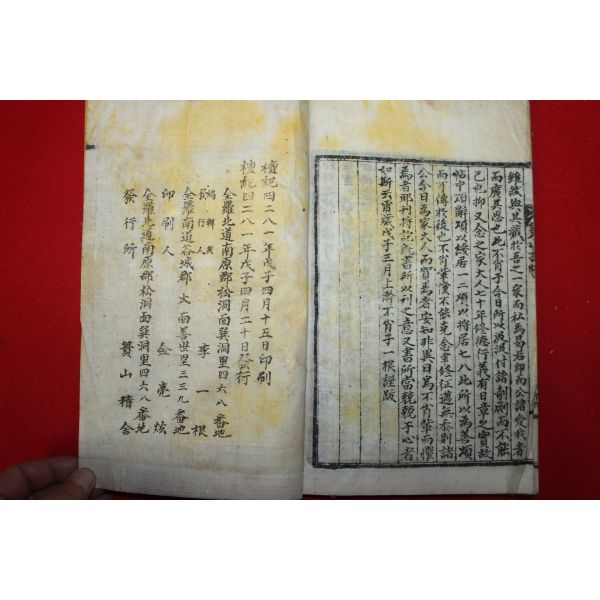 雖然與其藏於吾之一家而私焉曷若印而公諸愛我者
而廣其恩也此不肖子今日所以汲汲付諸剞劂而不能
已也抑又念之家大人七十年修德行義有日章之實故
帖中頌辭頌以綏居一二頌以將居七八此所以爲善頌
而可傳於後也不肖輩儻不能克念聿修征邁無忝則諸
公今日爲家大人而寶焉者安知非異日爲不肖輩而懼
焉者耶刊將訖旣書所以刊之意又書所當兢兢于心者
如斯云旹歲戊子三月上澣不肖子一根謹跋
檀紀四二八一年戊子四月十五日印刷
檀紀四二八一年戊子四月二十日發行
全羅北道南原郡松洞面巽洞里四六八番地
編輯兼
發行人 李一根
全羅南道谷城郡火面善世里三三九番地
印刷人 金亮炫
全羅北道南原郡松洞面巽洞里四六八番地
發行所 山精舍